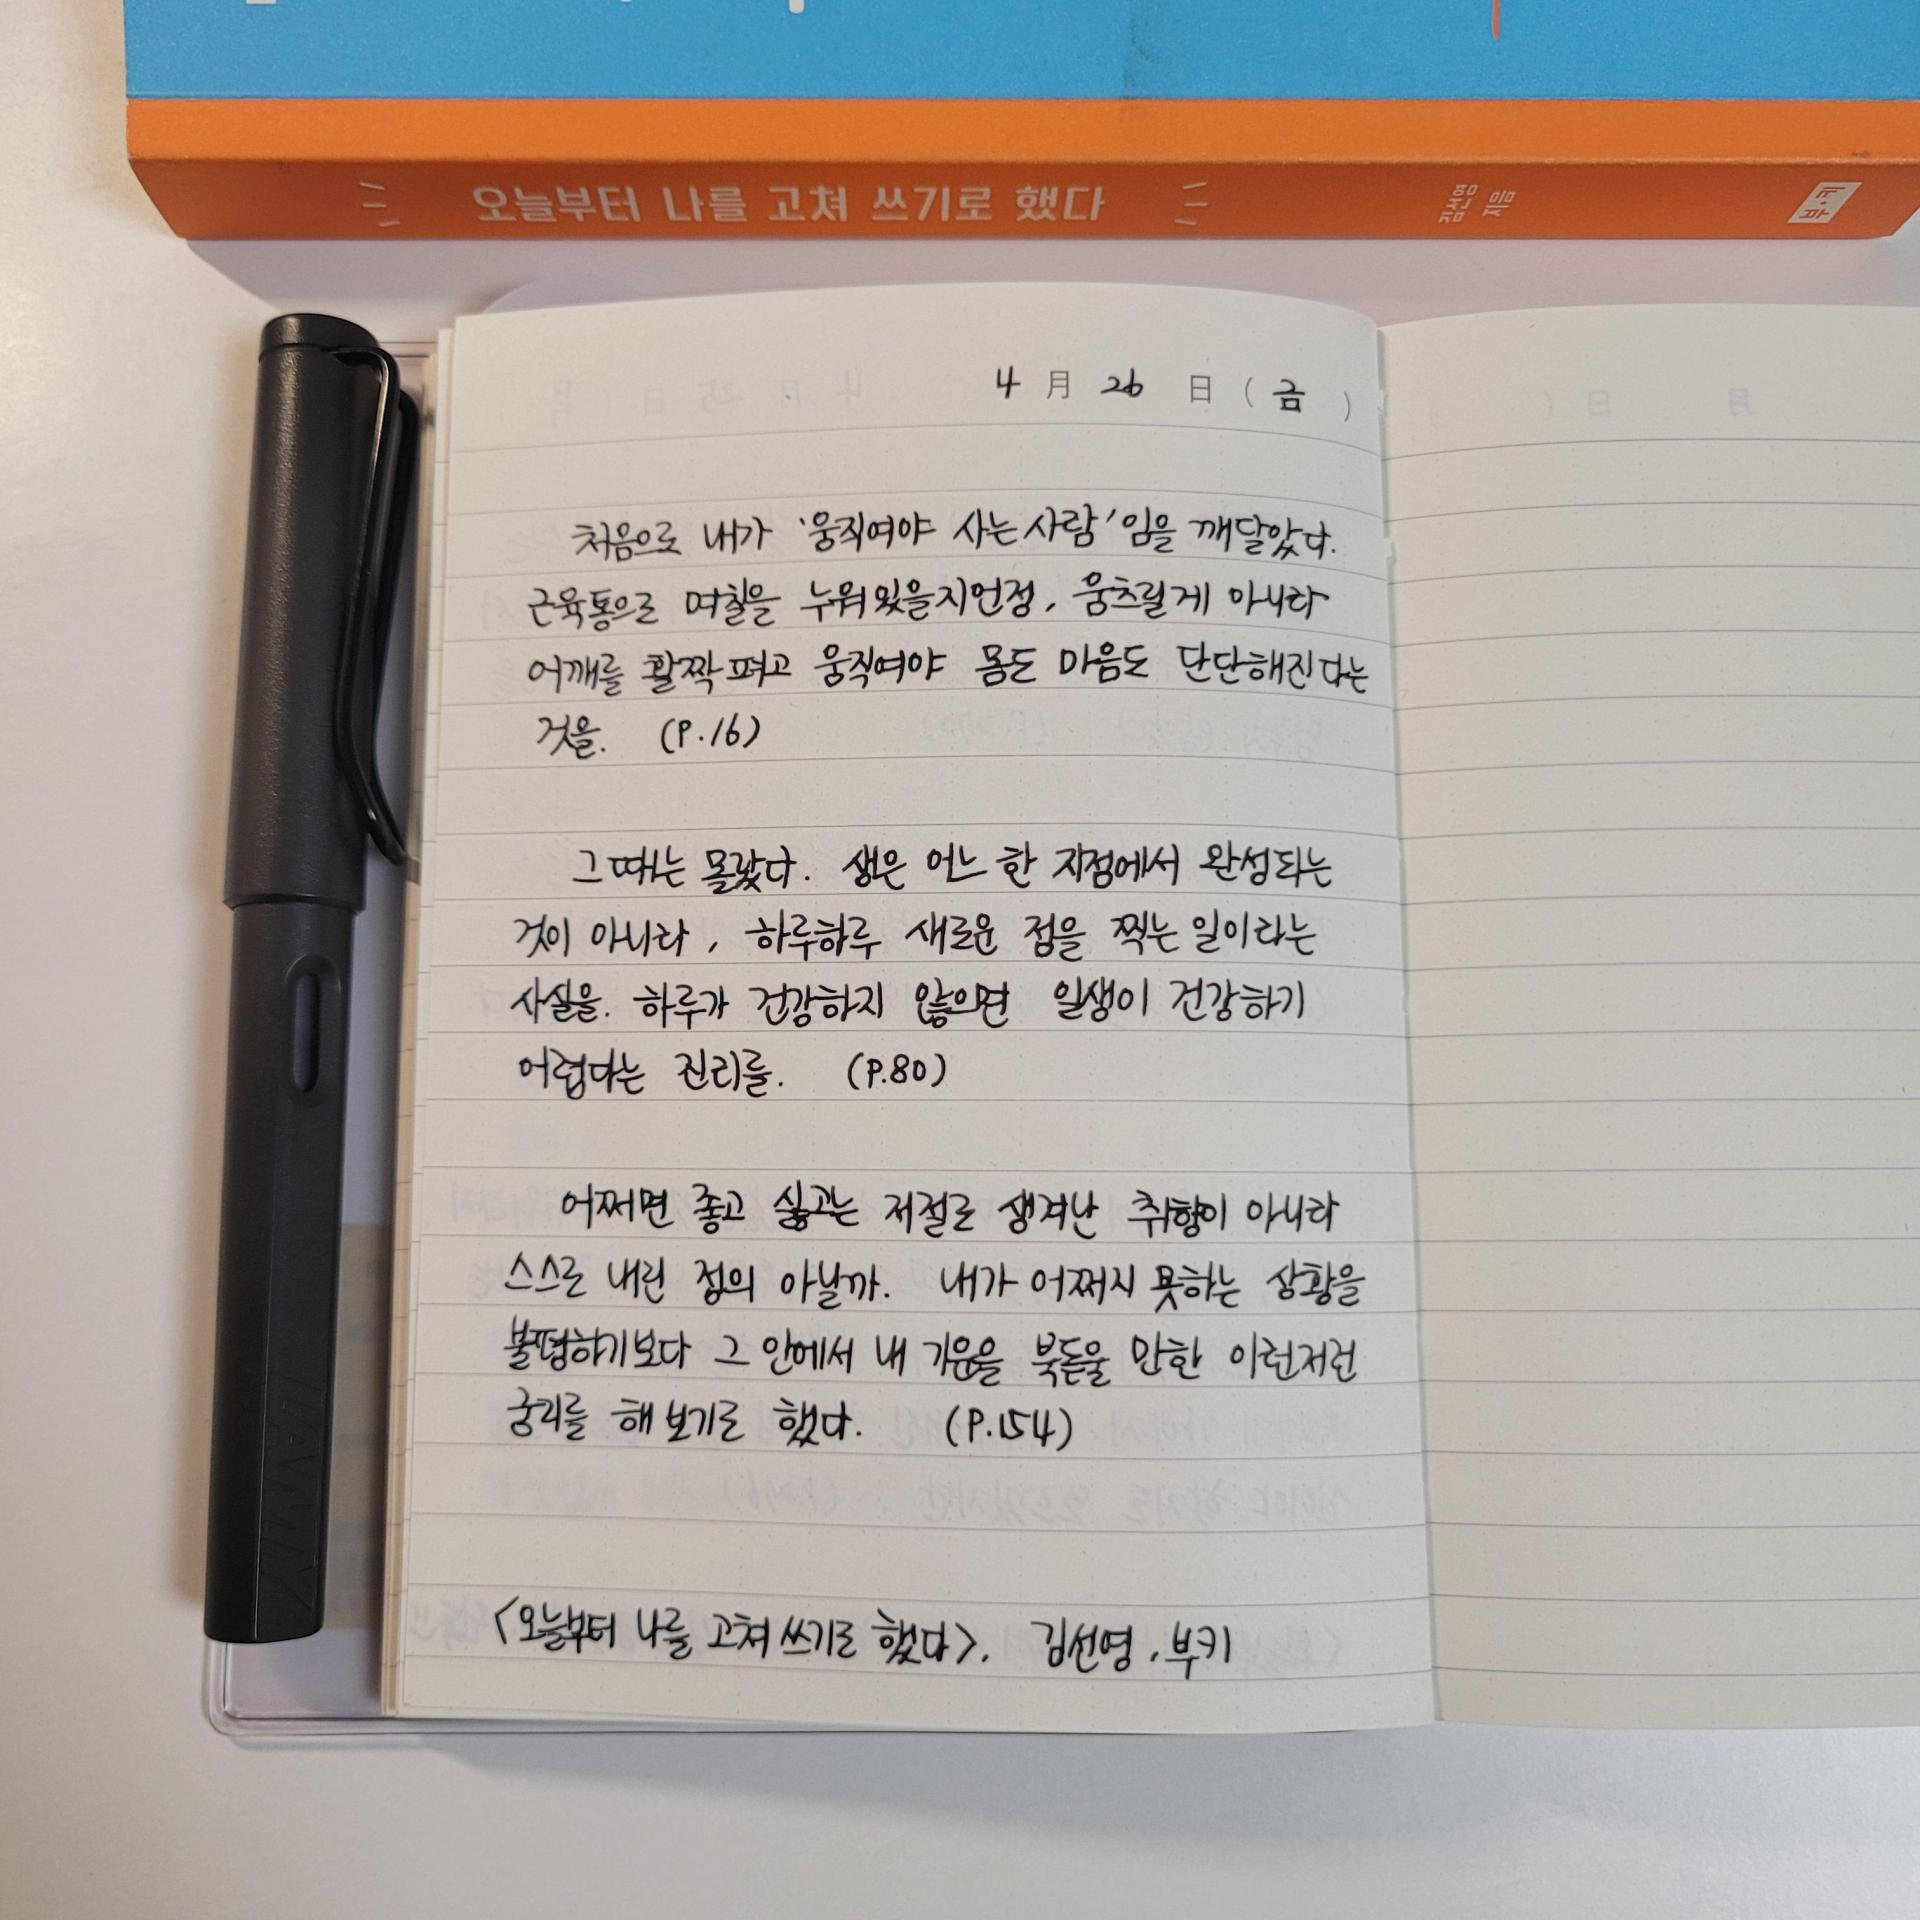 오늘부터 나를 고쳐 쓰기로 했다 김선영 지음 부·키
4 月 26 日 (금)
처음으로 내가 '움직여야 사는 사람'임을 깨달았다.
근육통으로 며칠을 누워있을지언정, 움츠릴게 아니라
어깨를 활짝 펴고 움직여야 몸도 마음도 단단해진다는
것을. (P.16)
그때는 몰랐다. 생은 어느 한 지점에서 완성되는
것이 아니라, 하루하루 새로운 점을 찍는 일이라는
사실을. 하루가 건강하지 않으면 일생이 건강하기
어렵다는 진리를. (P.80)
어쩌면 좋고 싫고는 저절로 생겨난 취향이 아니라
스스로 내린 정의 아닐까. 내가 어쩌지 못하는 상황을
불평하기보다 그 안에서 내 기운을 북돋울 만한 이런저런
궁리를 해 보기로 했다. (P.154)
<오늘부터 나를 고쳐 쓰기로 했다>. 김선영. 부키
LAMY